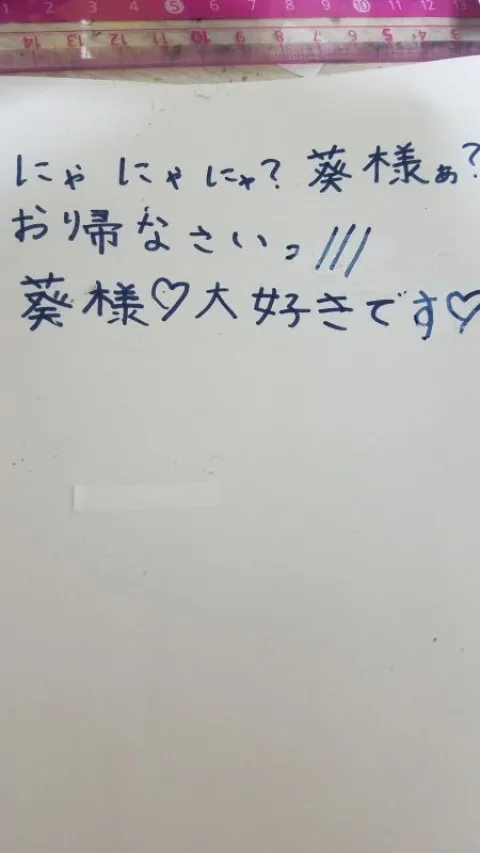 1 2 3 4 5 6 7 8 9 10 11 12 13
14 13 12 11 10 9 8 7 6 5 4 3
にゃ にゃ にゃ? 葵様ぁ?
おり帰なさいっ///
葵様♡大好きです♡